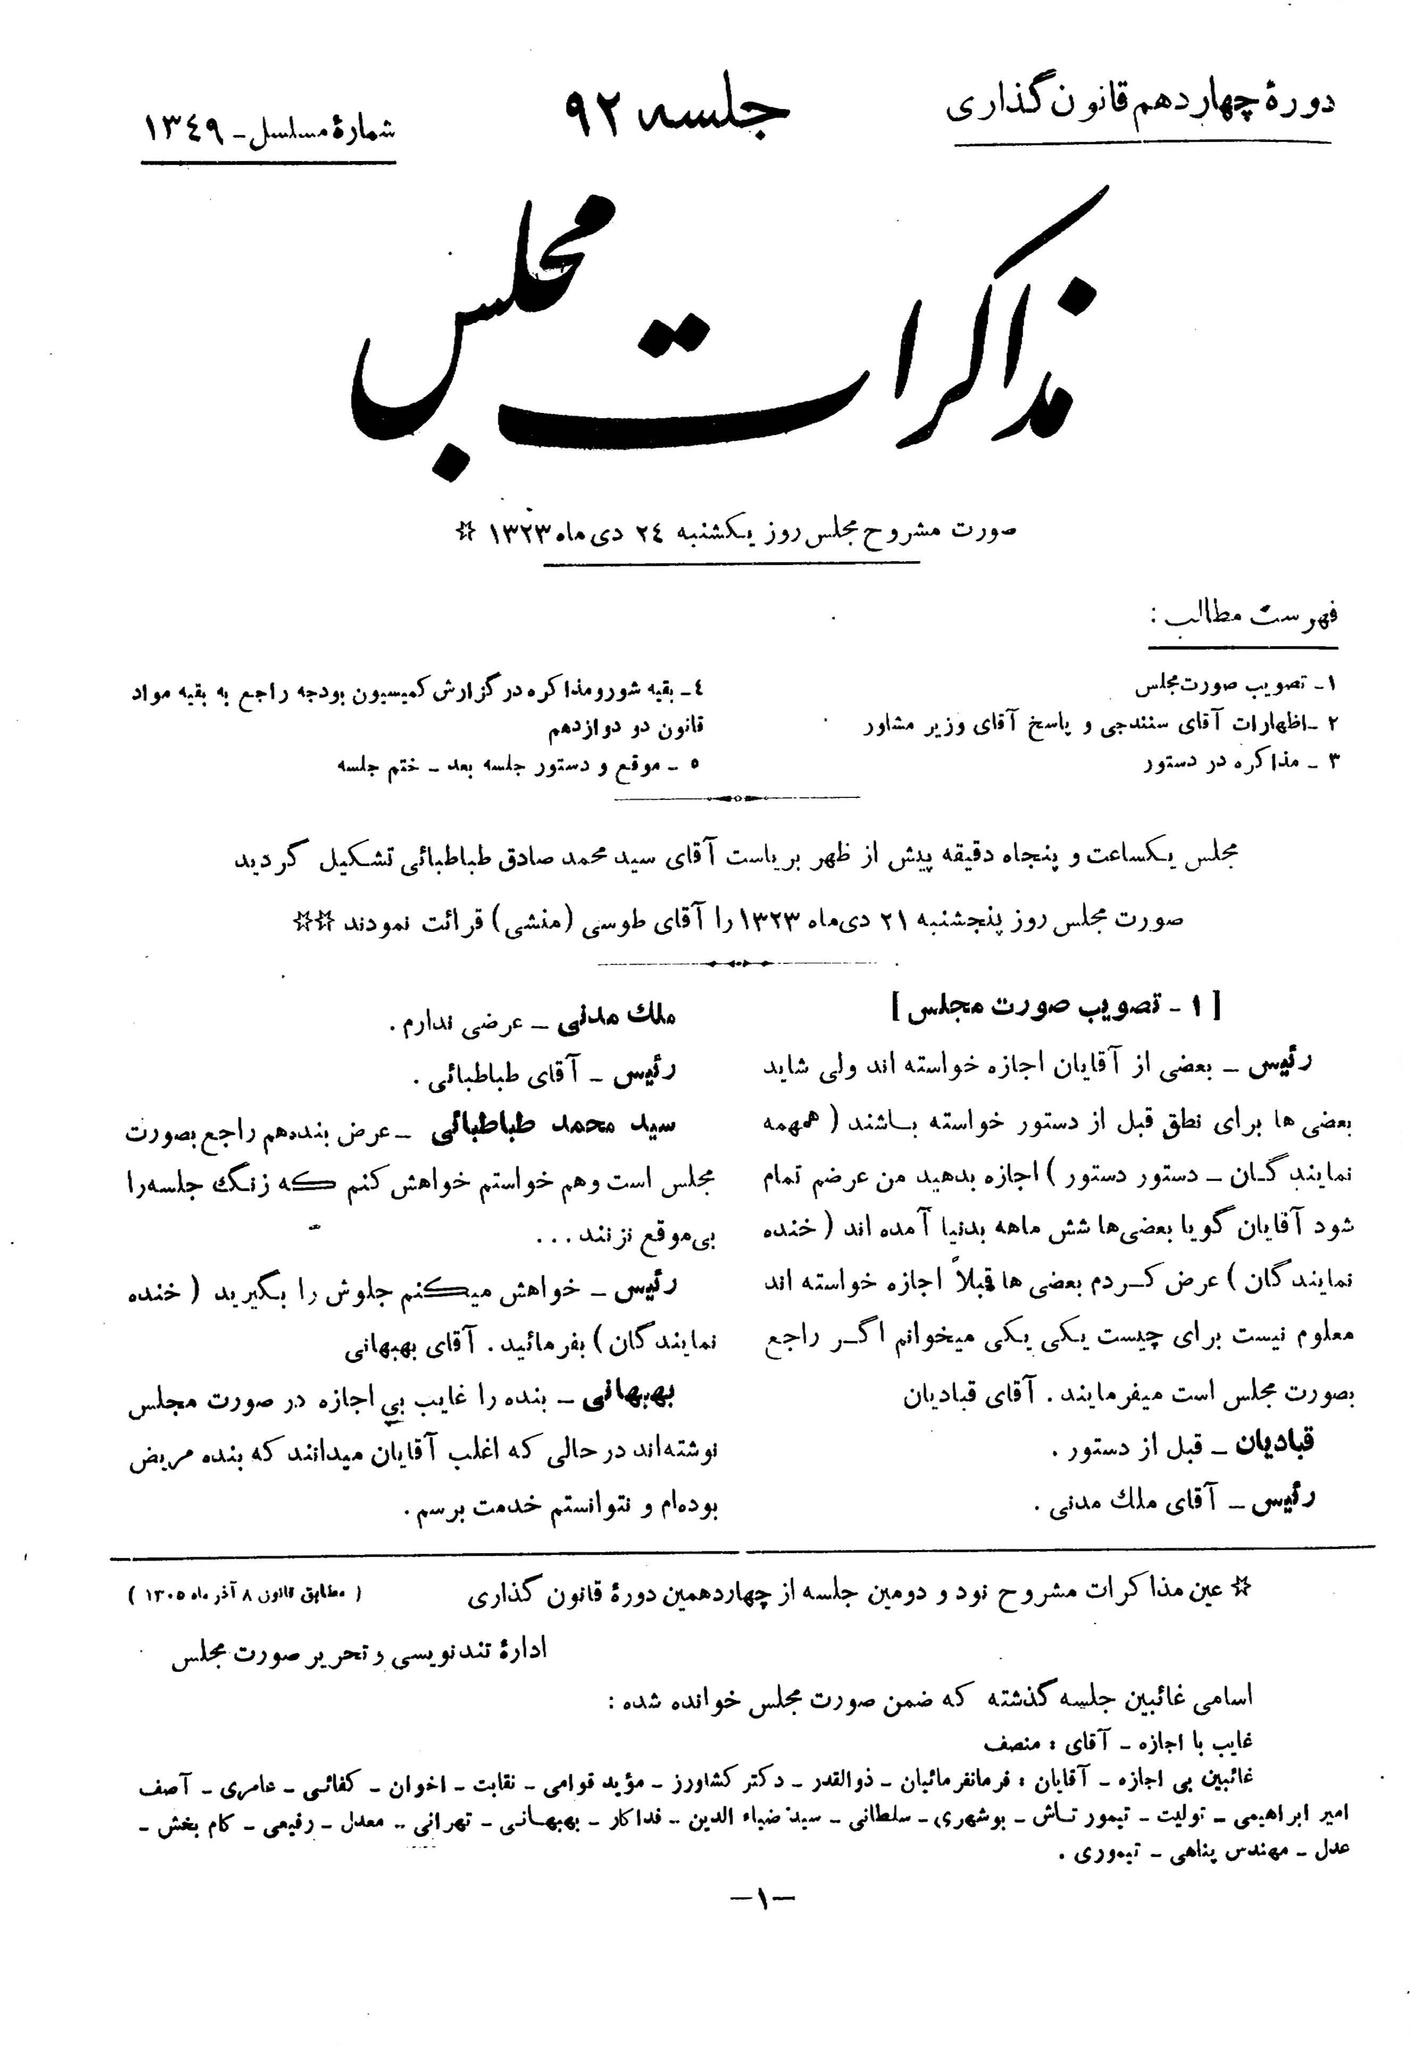 دورهٔ چهاردهم قانون گذاری
جلسه ۹۲
شمارهٔ مسلسل ـ ۱۳٤۹
مذاکرات مجلس
صورت مشروح مجلس روز یکشنبه ۲٤ دی ماه ۱۳۲۳ ☆
فهرست مطالب :
۱ـ تصویب صورت مجلس
۲ ـ اظهارات آقای سنندجی و پاسخ آقای وزیر مشاور
۳ ـ مذاکره در دستور
٤ـ بقیه شور و مذاکره در گزارش کمیسیون بودجه راجع به بقیه مواد
قانون دو دوازدهم
٥ ـ موقع و دستور جلسه بعد ـ ختم جلسه
مجلس یکساعت و پنجاه دقیقه پیش از ظهر بریاست آقای سید محمد صادق طباطبائی تشکیل گردید
صورت مجلس روز پنجشنبه ۲۱ دی ماه ۱۳۲۳ را آقای طوسی (منشی) قرائت نمودند ☆☆
[ ۱ ـ تصویب صورت مجلس ]
رئیس ـ بعضی از آقایان اجازه خواسته اند ولی شاید
بعضی ها برای نطق قبل از دستور خواسته باشند ( همهمه
نمایندگان ـ دستور دستور ) اجازه بدهید من عرضم تمام
شود آقایان گویا بعضی‌ها شش ماهه بدنیا آمده اند ( خنده
نمایندگان ) عرض کردم بعضی ها قبلاً اجازه خواسته اند
معلوم نیست برای چیست یکی یکی میخوانم اگر راجع
بصورت مجلس است میفرمایند . آقای قبادیان
قبادیان ـ قبل از دستور .
رئیس ـ آقای ملك مدنی .
ملك مدنی ـ عرضی ندارم .
رئیس ـ آقای طباطبائی .
سید محمد طباطبائی ـ عرض بنده هم راجع بصورت
مجلس است و هم خواستم خواهش کنم که زنگ جلسه را
بی موقع نزنند ...
رئیس ـ خواهش میکنم جلوش را بگیرید ( خنده
نمایندگان ) بفرمائید . آقای بهبهانی
بهبهانی ـ بنده را غایب بی اجازه در صورت مجلس
نوشته‌اند در حالی که اغلب آقایان میدانند که بنده مریض
بوده‌ام و نتوانستم خدمت برسم .
☆ عین مذاکرات مشروح نود و دومین جلسه از چهاردهمین دورهٔ قانون گذاری ( مطابق قانون ۸ آذر ماه ۱۳۰٥ )
ادارهٔ تندنویسی و تحریر صورت مجلس
اسامی غائبین جلسه گذشته که ضمن صورت مجلس خوانده شده :
غایب با اجازه ـ آقای : منصف
غائبین بی اجازه ـ آقایان : فرمانفرمائیان ـ ذوالقدر ـ دکتر کشاورز ـ مؤید قوامی ـ نقابت ـ اخوان ـ کفائی ـ عامری ـ آصف
امیر ابراهیمی ـ تولیت ـ تیمور تاش ـ بوشهری ـ سلطانی ـ سید ضیاء الدین ـ فداکار ـ بهبهانی ـ تهرانی ـ معدل ـ رفیعی ـ کام بخش ـ
عدل ـ مهندس پناهی ـ تیموری .
ـ۱ـ